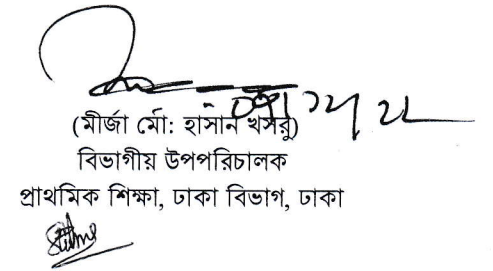 (মীর্জা মোঁ: হাসান খসরু)
বিভাগীয় উপপরিচালক
প্রাথমিক শিক্ষা, ঢাকা বিভাগ, ঢাকা